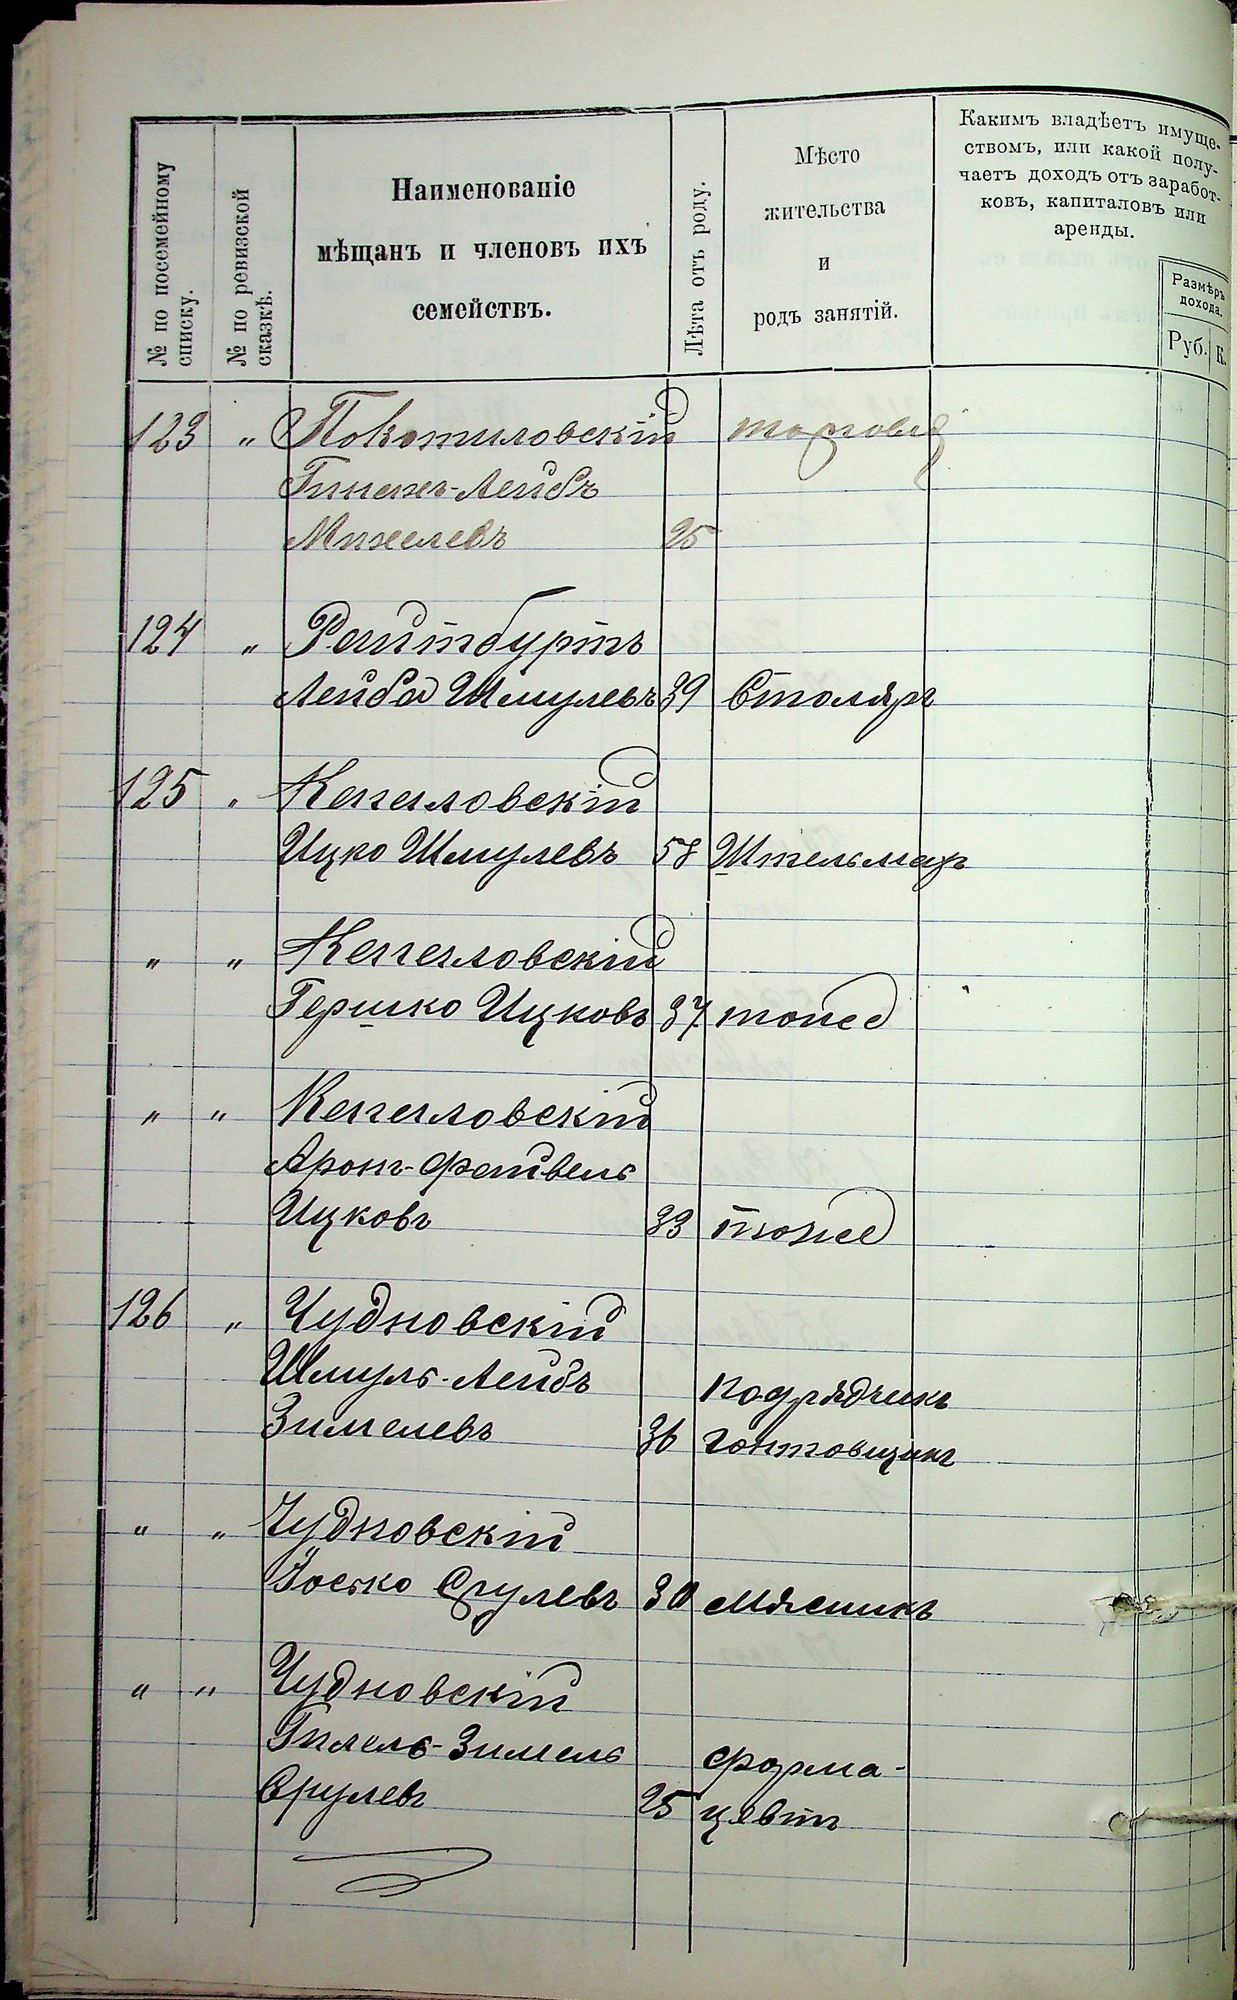 № по посемейному
списку.
№ по ревизской
сказкѣ.
Наименованіе
мѣщанъ и членовъ ихъ
семействъ.
Лѣта отъ роду.
Мѣсто
жительства
и
родъ занятій.
Какимъ владѣетъ имуще-
ствомъ, или какой полу-
чаетъ доходъ отъ заработ-
ковъ, капиталовъ или
аренды.
Размѣръ
дохода.
Руб. К.
123 " Покотиловскій
Лейбъ
Михелевъ 25
124 " Рейтбуртъ
Лейба Шмулевъ 39 Столяръ
125 " Капаловскій
Ицко Шмулевъ 58 Штельмахъ
" " Капаловскій
Гершко Ицковъ 37 тоже
" " Капаловскій
Аронъ-Файвель
Ицковъ 33 тоже
126 " Чудновскій
Шмуль-Лейбъ подрядчикъ
Зимелевъ 36 гонтовщикъ
" " Чудновскій
Іосько Срулевъ 30 мясникъ
" " Чудновскій
Гилель-Зимель фарма-
Срулевъ 25 цевтъ